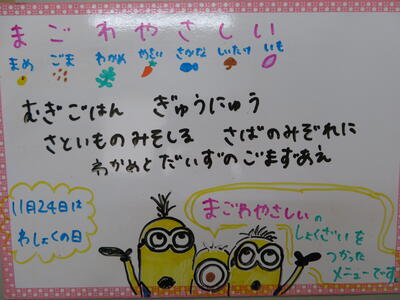 まごわやさしい
まめ ごま わかめ やさい さかな しいたけ いも
むぎごはん ぎゅうにゅう
さといものみそしる さばのみぞれに
わかめとだいずのごまずあえ
11月24日は
わしょくの日
まごわやさしいの
しょくざいを
つかった
メニューです。